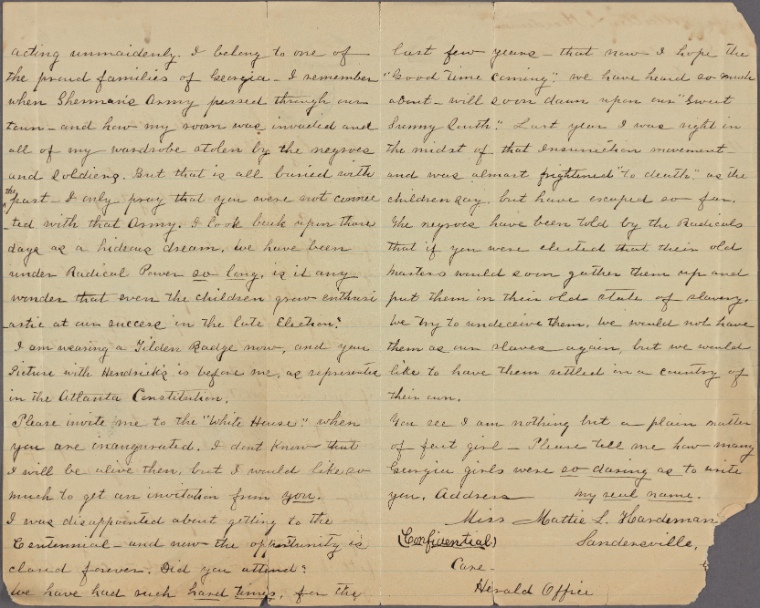 acting unmaidenly. I belong to one of
the proud families of Georgia - I remember
when Sherman's Army passed through our
town - and how my room was invaded and
all of my wardrobe stolen by the negroes
and soldiers. But that is all buried with
the
past - I only pray that you were not connec
-ted with that Army. I look back upon those
days as a hideous dream. We have been
under Radical Power so long, is it any
wonder that even the children grow enthusi
astic at our success in the late Election?
I am wearing a Tilden Badge now, and your
Picture with Hendricks is before me, as represented
in the Atlanta Constitution.
Please invite me to the "White House" when
you are inaugurated. I dont know that
I will be alive then, but I would like so
much to get an invitation from you.
I was disappointed about getting to the
Centennial - and now the opportunity is
closed forever. Did you attend?
We have had such hard times, for the
last few years - that now I hope the
"Good time coming" we have heard so much
about - will soon dawn upon our "Sweet
Sunny South." Last year I was right in
the midst of that Insurrection movement -
and was almost frightened "to death" as the
children say, but have escaped so far.
The negroes have been told by the Radicals
that if you were elected that their old
masters would soon gather them up and
put them in their old state of slavery.
We try to undeceive them. We would not have
them as our slaves again, but we would
like to have them settled in a country of
their own.
You see I am nothing but a plain matter
of fact girl - Please tell me how many
Georgia girls were so daring as to write
you. Address my real name.
Miss Mattie L. Hardeman
(Confidential) Sandersville,
Care -
Herald Office